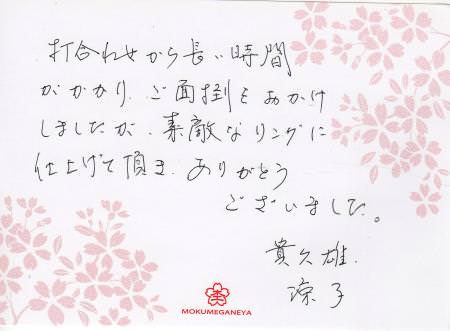 打合わせから長い時間
がかかり、ご面倒をおかけ
しましたが、素敵なリングに
仕上げて頂き、ありがとう
ございました。
貴久雄.
涼子
MOKUMEGANEYA